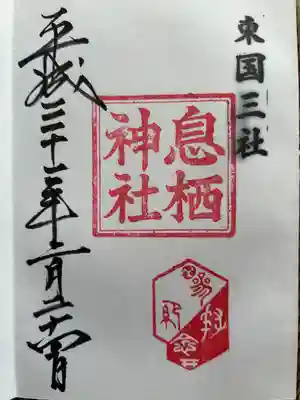 東国三社
息栖
神社
平成三十一年二月二十四日